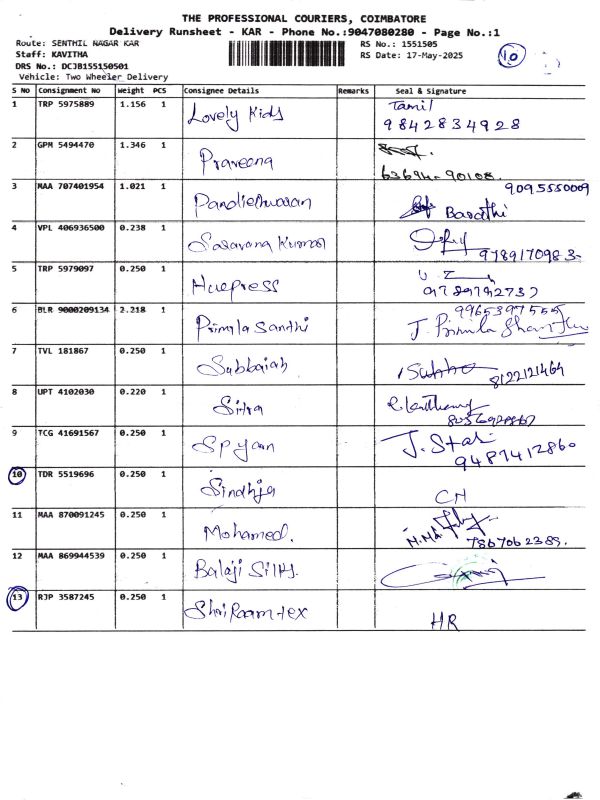 THE PROFESSIONAL COURIERS, COIMBATORE
Delivery Runsheet - KAR - Phone No.:9047080280 - Page No.:1
Route: SENTHIL NAGAR KAR
RS No.: 1551505
Staff: KAVITHA
RS Date: 17-May-2025
10
DRS No.: DCJB155150501
Vehicle: Two Wheeler Delivery
S No Consignment No Weight PCS Consignee Details Remarks Seal & Signature
1 TRP 5975889 1.156 1 Lovely Kids Tamil
9842834928
2 GPM 5494470 1.346 1 Praveena
63694-90108.
3 MAA 707401954 1.021 1 Pandieshwaran 9095550009
Barathi
4 VPL 406936500 0.238 1 Saravana Kumar
9789170983-
5 TRP 5979097 0.250 1 Huepress
9789792737
6 BLR 9000209134 2.218 1 Primila Santhi 9965397555
J. Primila
7 TVL 181867 0.250 1 Subbaiah
8122121464
8 UPT 4102030 0.220 1 Sitra
9 TCG 41691567 0.250 1 Spyan
9487412860
10 TDR 5519696 0.250 1 Sindhja
CH
11 MAA 870091245 0.250 1 Mohamed.
7867062389.
12 MAA 869944539 0.250 1 Balaji Silks.
13 RJP 3587245 0.250 1 Shri Raam tex
HR